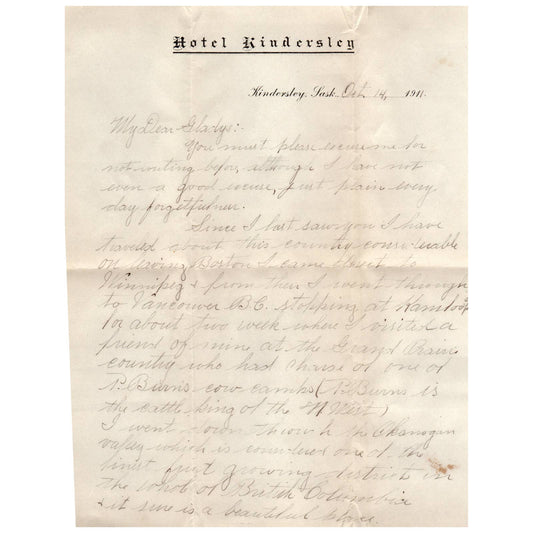 Hotel Kindersley
Kindersley, Sask. Oct. 14, 1911.
My Dear Gladys:.
You must please excuse me for
not writing before, although I have not
even a good excuse, just plain every
day forgetfulness.
Since I last saw you I have
traveled about this country considerable
on leaving Boston I came direct to
Winnipeg & from then I went through
to Vancouver B.C. stopping at Kamloops
for about two week where I visited a
friend of mine at the Grand Prairie
country who had charge of one of
P. Burns cow camps (P. Burns is
the cattle king of the N West)
I went down through the Okanogan
valley which is considered one of the
finest fruit growing districts in
the whole of British Columbia
& it sure is a beautiful place.